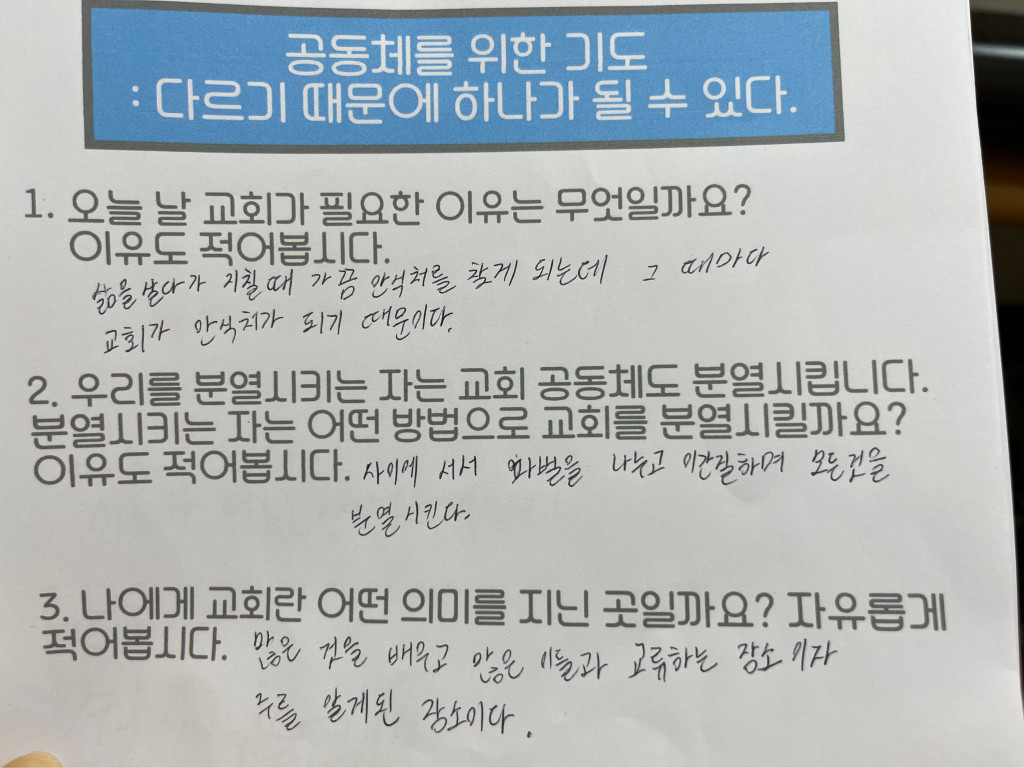 공동체를 위한 기도
: 다르기 때문에 하나가 될 수 있다.
1. 오늘 날 교회가 필요한 이유는 무엇일까요?
이유도 적어봅시다.
삶을 살다가 지칠때 가끔 안식처를 찾게 되는데 그 때마다
교회가 안식처가 되기 때문이다.
2. 우리를 분열시키는 자는 교회 공동체도 분열시킵니다.
분열시키는 자는 어떤 방법으로 교회를 분열시킬까요?
이유도 적어봅시다. 사이에 서서 파벌을 나누고 이간질하며 모든것을
분열시킨다.
3. 나에게 교회란 어떤 의미를 지닌 곳일까요? 자유롭게
적어봅시다. 많은 것을 배우고 많은 이들과 교류하는 장소이자
주를 알게된 장소이다.